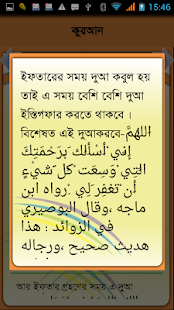 15:46
কুরআন
ইফতারের সময় দুআ কবুল হয়
তাই এ সময় বেশি বেশি দুআ
ইস্তিগফার করতে থাকবে ।
বিশেষত এই দুআকরবে-اللهمَّ
إِنِّي أَسْأَلُكَ بِرَحْمَتِكَ
الَّتِي وَسِعَتْ كُلَّ شَيْءٍ
أَنْ تَغْفِرَ لِي. رواه ابن
ماجه ،وقال البوصيري
في الزوائد : هذا
حديث صحيح ،ورجاله
আর ইফতার গ্রহণের সময় এ দুআ